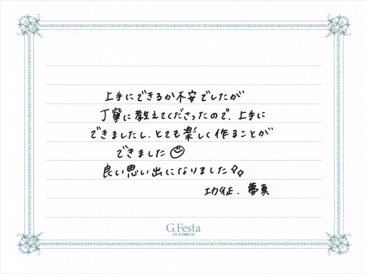 上手にできるか不安でしたが
丁寧に教えてくださったので、上手に
できましたし、とても楽しく作ることが
できました
良い思い出になりました
G.Festa